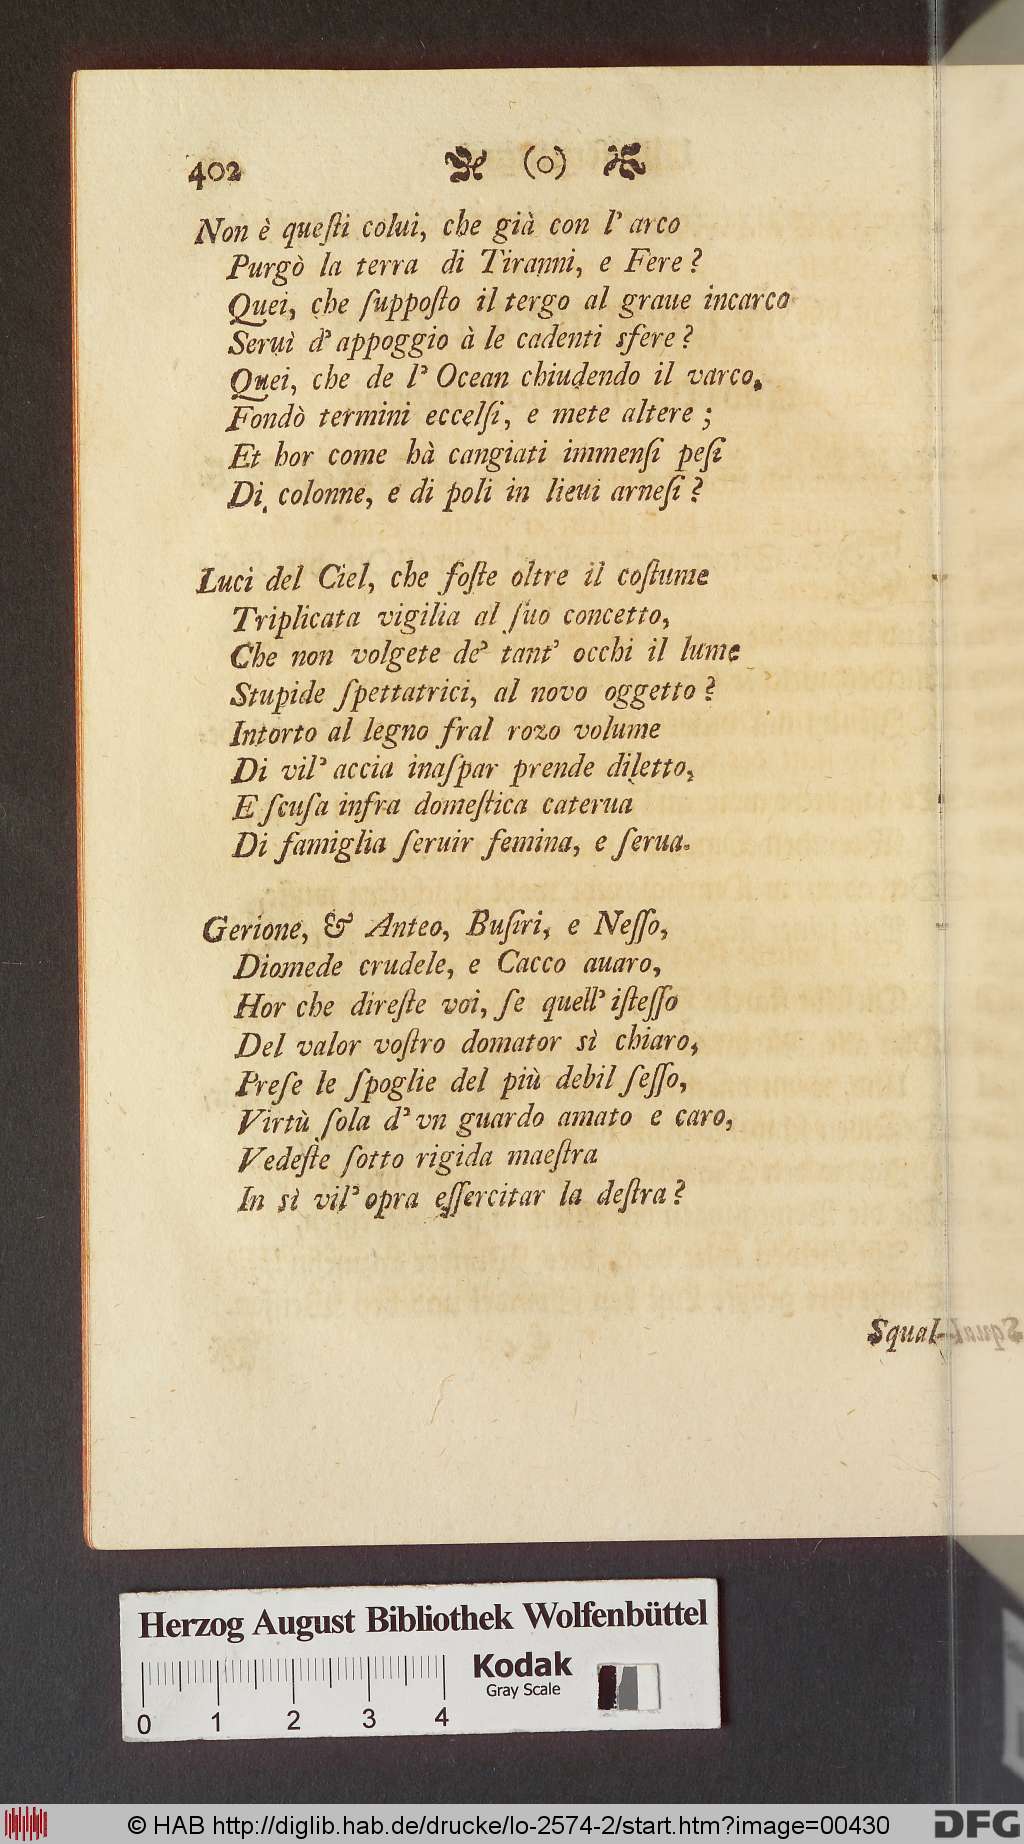 402 (o)
Non è queſti colui, che già con l' arco
Purgò la terra di Tiranni, e Fere?
Quei, che ſuppoſto il tergo al graue incarco
Seruì d' appoggio à le cadenti sfere?
Quei, che de l' Ocean chiudendo il varco,
Fondò termini eccelſi, e mete altere ;
Et hor come hà cangiati immenſi peſi
Di colonne, e di poli in lieui arneſi?
Luci del Ciel, che foſte oltre il coſtume
Triplicata vigilia al ſuo concetto,
Che non volgete de' tant' occhi il lume
Stupide ſpettatrici, al novo oggetto?
Intorto al legno fral rozo volume
Di vil' accia inaſpar prende diletto,
E ſcuſa infra domeſtica caterua
Di famiglia ſeruir femina, e ſerua.
Gerione, & Anteo, Buſiri, e Neſſo,
Diomede crudele, e Cacco auaro,
Hor che direſte voi, ſe quell' iſteſſo
Del valor voſtro domator sì chiaro,
Preſe le ſpoglie del più debil ſeſſo,
Virtù ſola d' vn guardo amato e caro,
Vedeſte ſotto rigida maeſtra
In sì vil' opra eſſercitar la deſtra?
Squal-
Herzog August Bibliothek Wolfenbüttel
Kodak
Gray Scale
0 1 2 3 4
© HAB http://diglib.hab.de/drucke/lo-2574-2/start.htm?image=00430
DFG